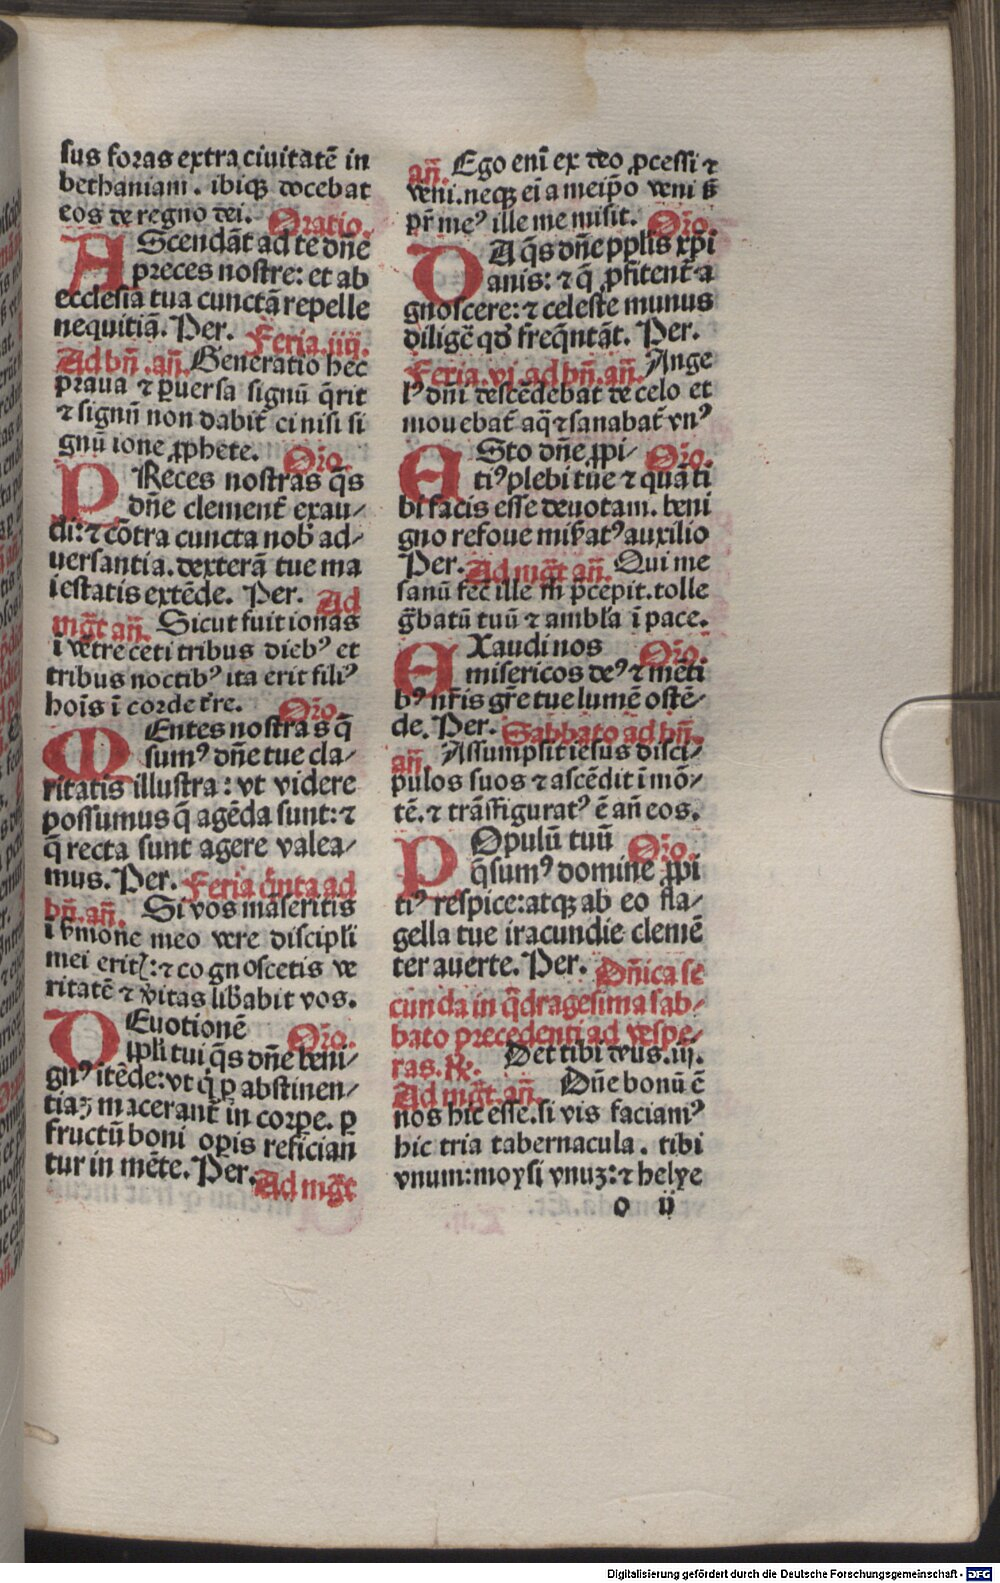 sus foras extra ciuitatē in
bethaniam. ibiqꝫ docebat
eos de regno dei. Oratio.
AScendāt ad te dn̄e
preces nostre: et ab
ecclesia tua cunctā repelle
nequitiā. Per. Feria. iiij.
Ad bn̄. an̄. Generatio hec
praua ⁊ ꝑuersa signū q̄rit
⁊ signū non dabit̄ ei nisi si
gnū ione ꝓphete. Oro.
PReces nostras q̄s
dn̄e clement̄ exau⸗
di: ⁊ cōtra cuncta nob̄ ad⸗
uersantia. dexterā tue ma
iestatis extēde. Per. Ad
mgt̄ an̄. Sicut fuit ionas
ī vētre ceti tribus dieb⁹ et
tribus noctib⁹ ita erit fili⁹
hoīs ī corde tr̄e. Oro.
MEntes nostras q̄
sum⁹ dn̄e tue cla⸗
ritatis illustra: vt videre
possumus q̄ agēda sunt: ⁊
q̄ recta sunt agere valea⸗
mus. Per. Feria q̇nta ad
bn̄. an̄. Si vos māseritis
ī ẜmone meo vere discipli
mei eritꝭ: ⁊ cognoscetis ve
ritatē ⁊ v̄itas lib̄abit vos.
DEuotionē Oro.
ipli tui q̄s dn̄e beni⸗
gn⁹ itēde: vt q̇ ꝑ abstinen⸗
tiaꝫ macerant̄ in corꝑe. ꝑ
fructū boni oꝑis refician̄
tur in mēte. Per. Ad mgt̄
an̄. Ego enī ex deo ꝓcessi ⁊
veni. neqꝫ ei a meip̄o veni ß
pr̄ me⁹ ille me misit. Oro.
DA q̄s dn̄e pp̄lis xp̄i
anis: ⁊ q̄ ꝓfitent̄ a
gnoscere: ⁊ celeste munus
diligē qd̄ freq̄ntāt. Per.
Feria. vi ad bn̄. an̄. Ange
l⁹ dn̄i descēdebat de celo et
mouebat̄ aq̄ ⁊ sanabat̄ vn⁹
ASto dn̄e ꝓpi⸗ Oro.
ti⁹ plebi tue ⁊ quā ti
bi facis esse deuotam. beni
gno refoue mis̄at⁹ auxilio
Per. Ad mgt̄ an̄. Qui me
sanū fec̄ ille m̄ p̄cepit. tolle
g̃batū tuū ⁊ ambl̄a ī pace.
EXaudi nos Oro.
misericos de⁹ ⁊ mēti
b⁹ nr̄is gr̄e tue lumē ostē⸗
de. Per. Sabbato ad bn̄.
an̄. Assumpsit iesus disci⸗
pulos suos ⁊ ascēdit ī mō⸗
tē. ⁊ trāsfigurat⁹ ē an̄ eos.
POpulū tuū Oro.
q̄sum⁹ domine ꝓpi
ti⁹ respice: atqꝫ ab eo fla⸗
gella tue iracundie clemē
ter auerte. Per. Dn̄ica se
cunda in q̄dragesima sab⸗
bato precedenti ad vespe⸗
ras. ℞. Det tibi deus. iij.
Ad mgt̄. an̄. Dn̄e bonū ē
nos hic esse. si vis faciam⁹
hic tria tabernacula. tibi
vnum: moysi vnuꝫ: ⁊ helye
o ij
Digitalisierung gefördert durch die Deutsche Forschungsgemeinschaft - DFG